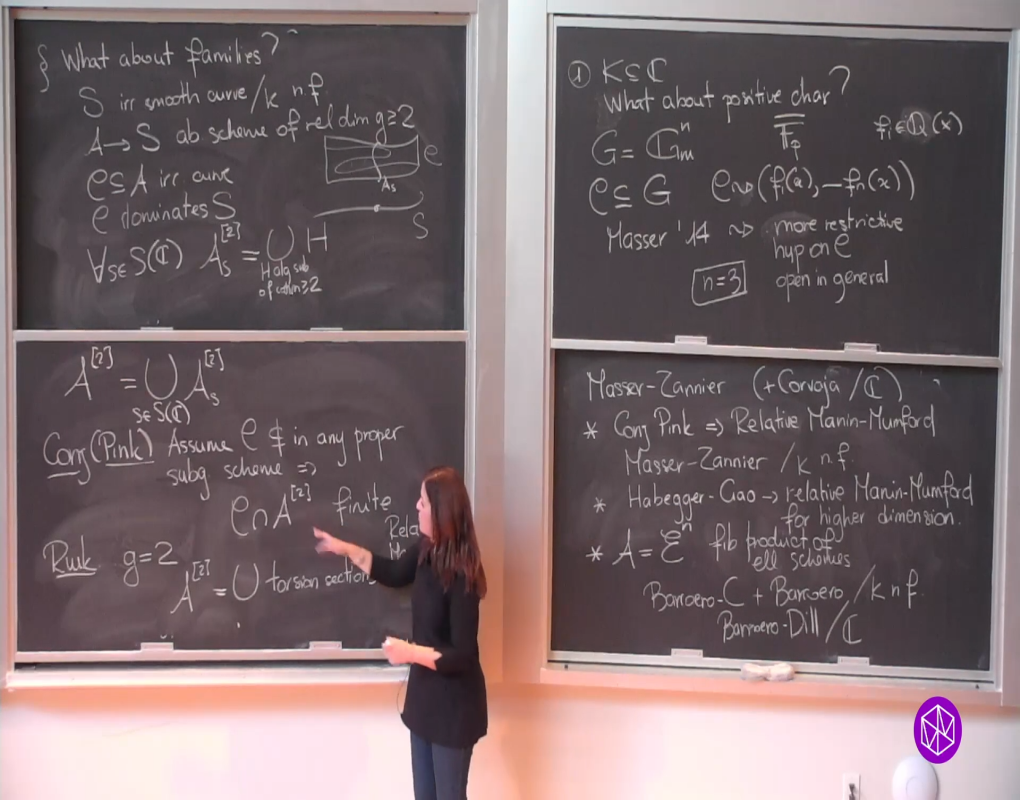 § What about families?
S irr smooth curve/k n.f.
A → S ab scheme of rel dim g≥2
C ⊆ A irr curve
C dominates S
C
A_s
S
∀s∈S(ℂ) A_s^[2] = ∪ H
H alg sub
of codim≥2
A^[2] = ∪ A_s^[2]
s∈S(ℂ)
Conj (Pink) Assume C ⊄ in any proper
subg. scheme ⇒
C∩A^[2] finite
Rela
Ma
Rmk. g=2
A^[2] = ∪ torsion sections
① K⊆ℂ
What about positive char?
F̄_p
G = 𝔾_m^n
f_i∈ℚ(x)
C ⊆ G C ⇝ (f_1(x), – f_n(x))
Masser '14 ⇝ more restrictive
hyp on C
n=3
open in general
Masser-Zannier (+Corvaja /ℂ)
* Conj Pink ⇒ Relative Manin-Mumford
Masser-Zannier /k n.f.
* Habegger-Gao → relative Manin-Mumford
for higher dimension.
* A = ℰ^n fib product of
ell schemes
Barroero-C + Barroero /k n f.
Barroero-Dill /ℂ